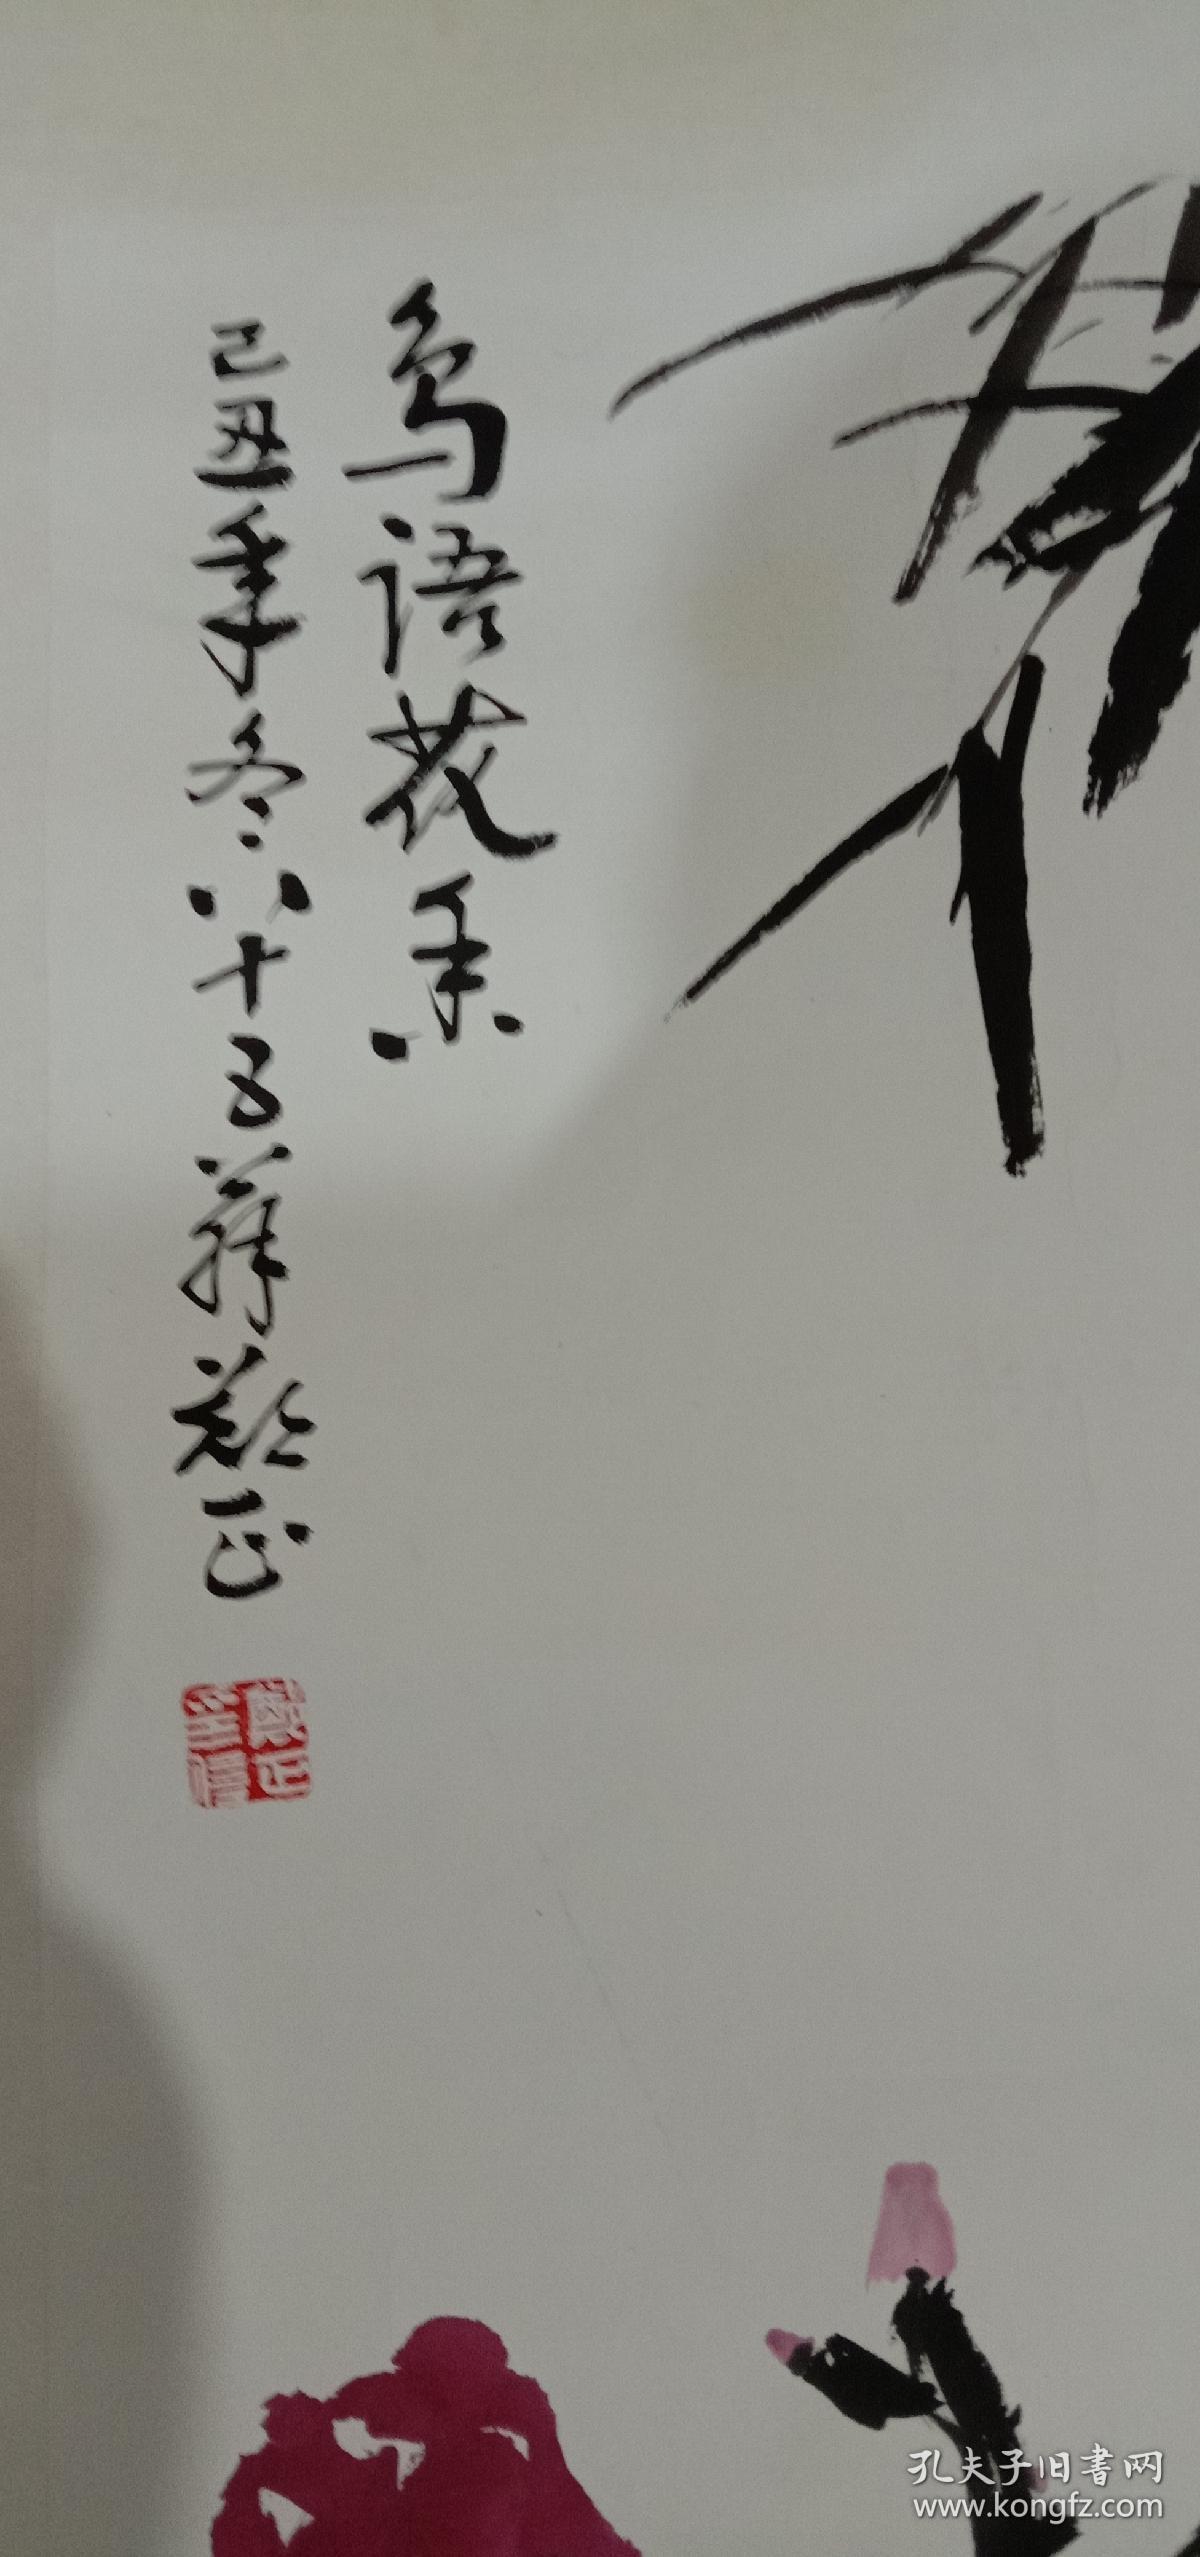 鸟语花香
己丑年冬八十子薛郑正
孔夫子旧书网
www.kongfz.com